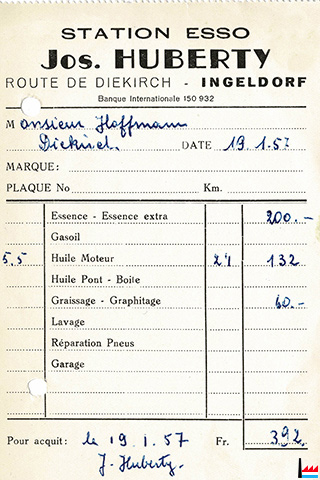 STATION ESSO
Jos. HUBERTY
ROUTE DE DIEKIRCH - INGELDORF
Banque Internationale 150 932
Monsieur Hoffmann
Diekirch. DATE 19.1.57
MARQUE:
PLAQUE No Km.
Essence - Essence extra 200.-
Gasoil
5.5 Huile Moteur 24 132
Huile Pont - Boite
Graissage - Graphitage 60.-
Lavage
Réparation Pneus
Garage
Pour acquit: le 19.1.57 Fr. 392.
J. Huberty.